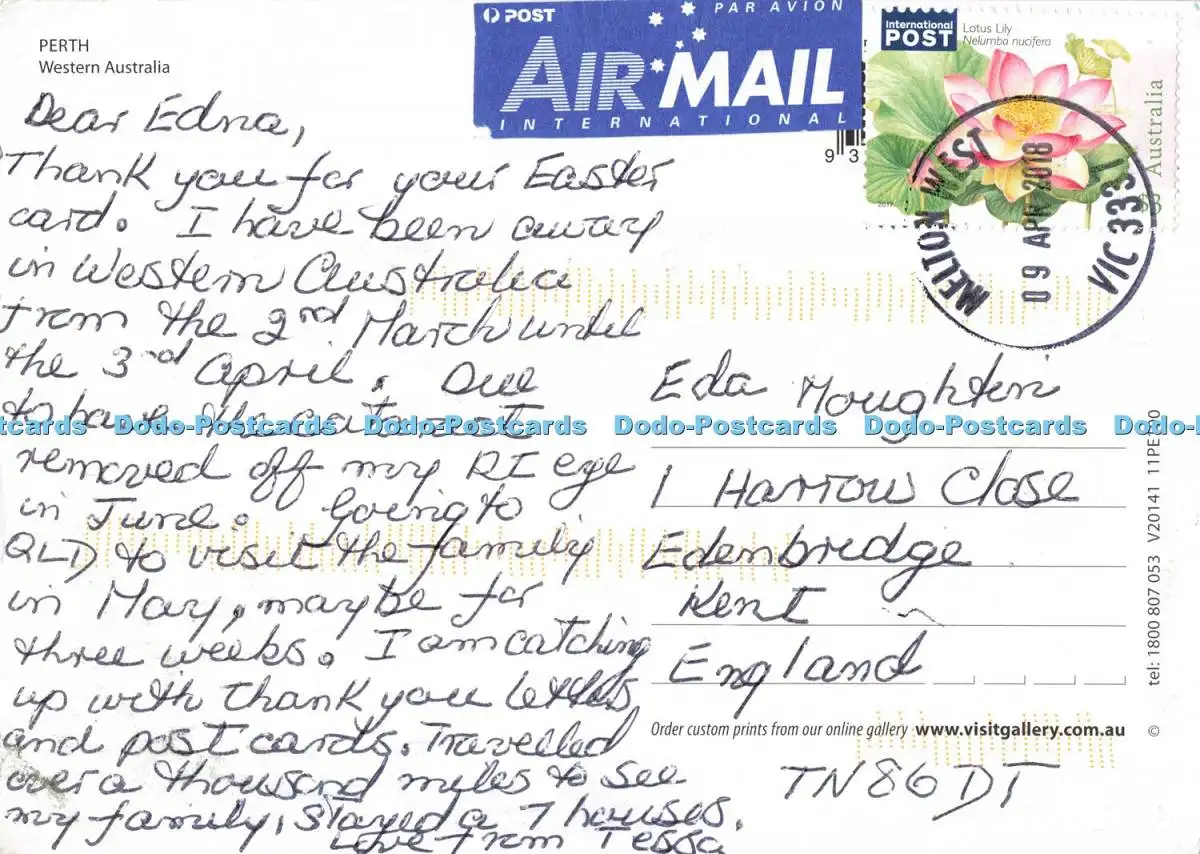 PERTH
Western Australia
POST
PAR AVION
AIR MAIL
INTERNATIONAL
93
International
POST
Lotus Lily
Nelumbo nucifera
Australia
$3
2017
MELTON WEST
09 APR 2018
VIC 333
Dear Edna,
Thank you for your Easter
card. I have been away
in Western Australia
from the 2nd March until
the 3rd April. Due
to have the cataract
removed off my RI eye
in June. Going to
QLD to visit the family
in May, maybe for
three weeks. I am catching
up with thank you letters
and post cards. Travelled
over a thousand miles to see
my family, stayed a 7 houses.
Love from Tessa
Eda Moughtin
1 Harrow Close
Edenbridge
Kent
England
TN86DT
Order custom prints from our online gallery www.visitgallery.com.au ©
tel: 1800 807 053 V20141 11PE
Dodo-Postcards Dodo-Postcards Dodo-Postcards Dodo-Postcards